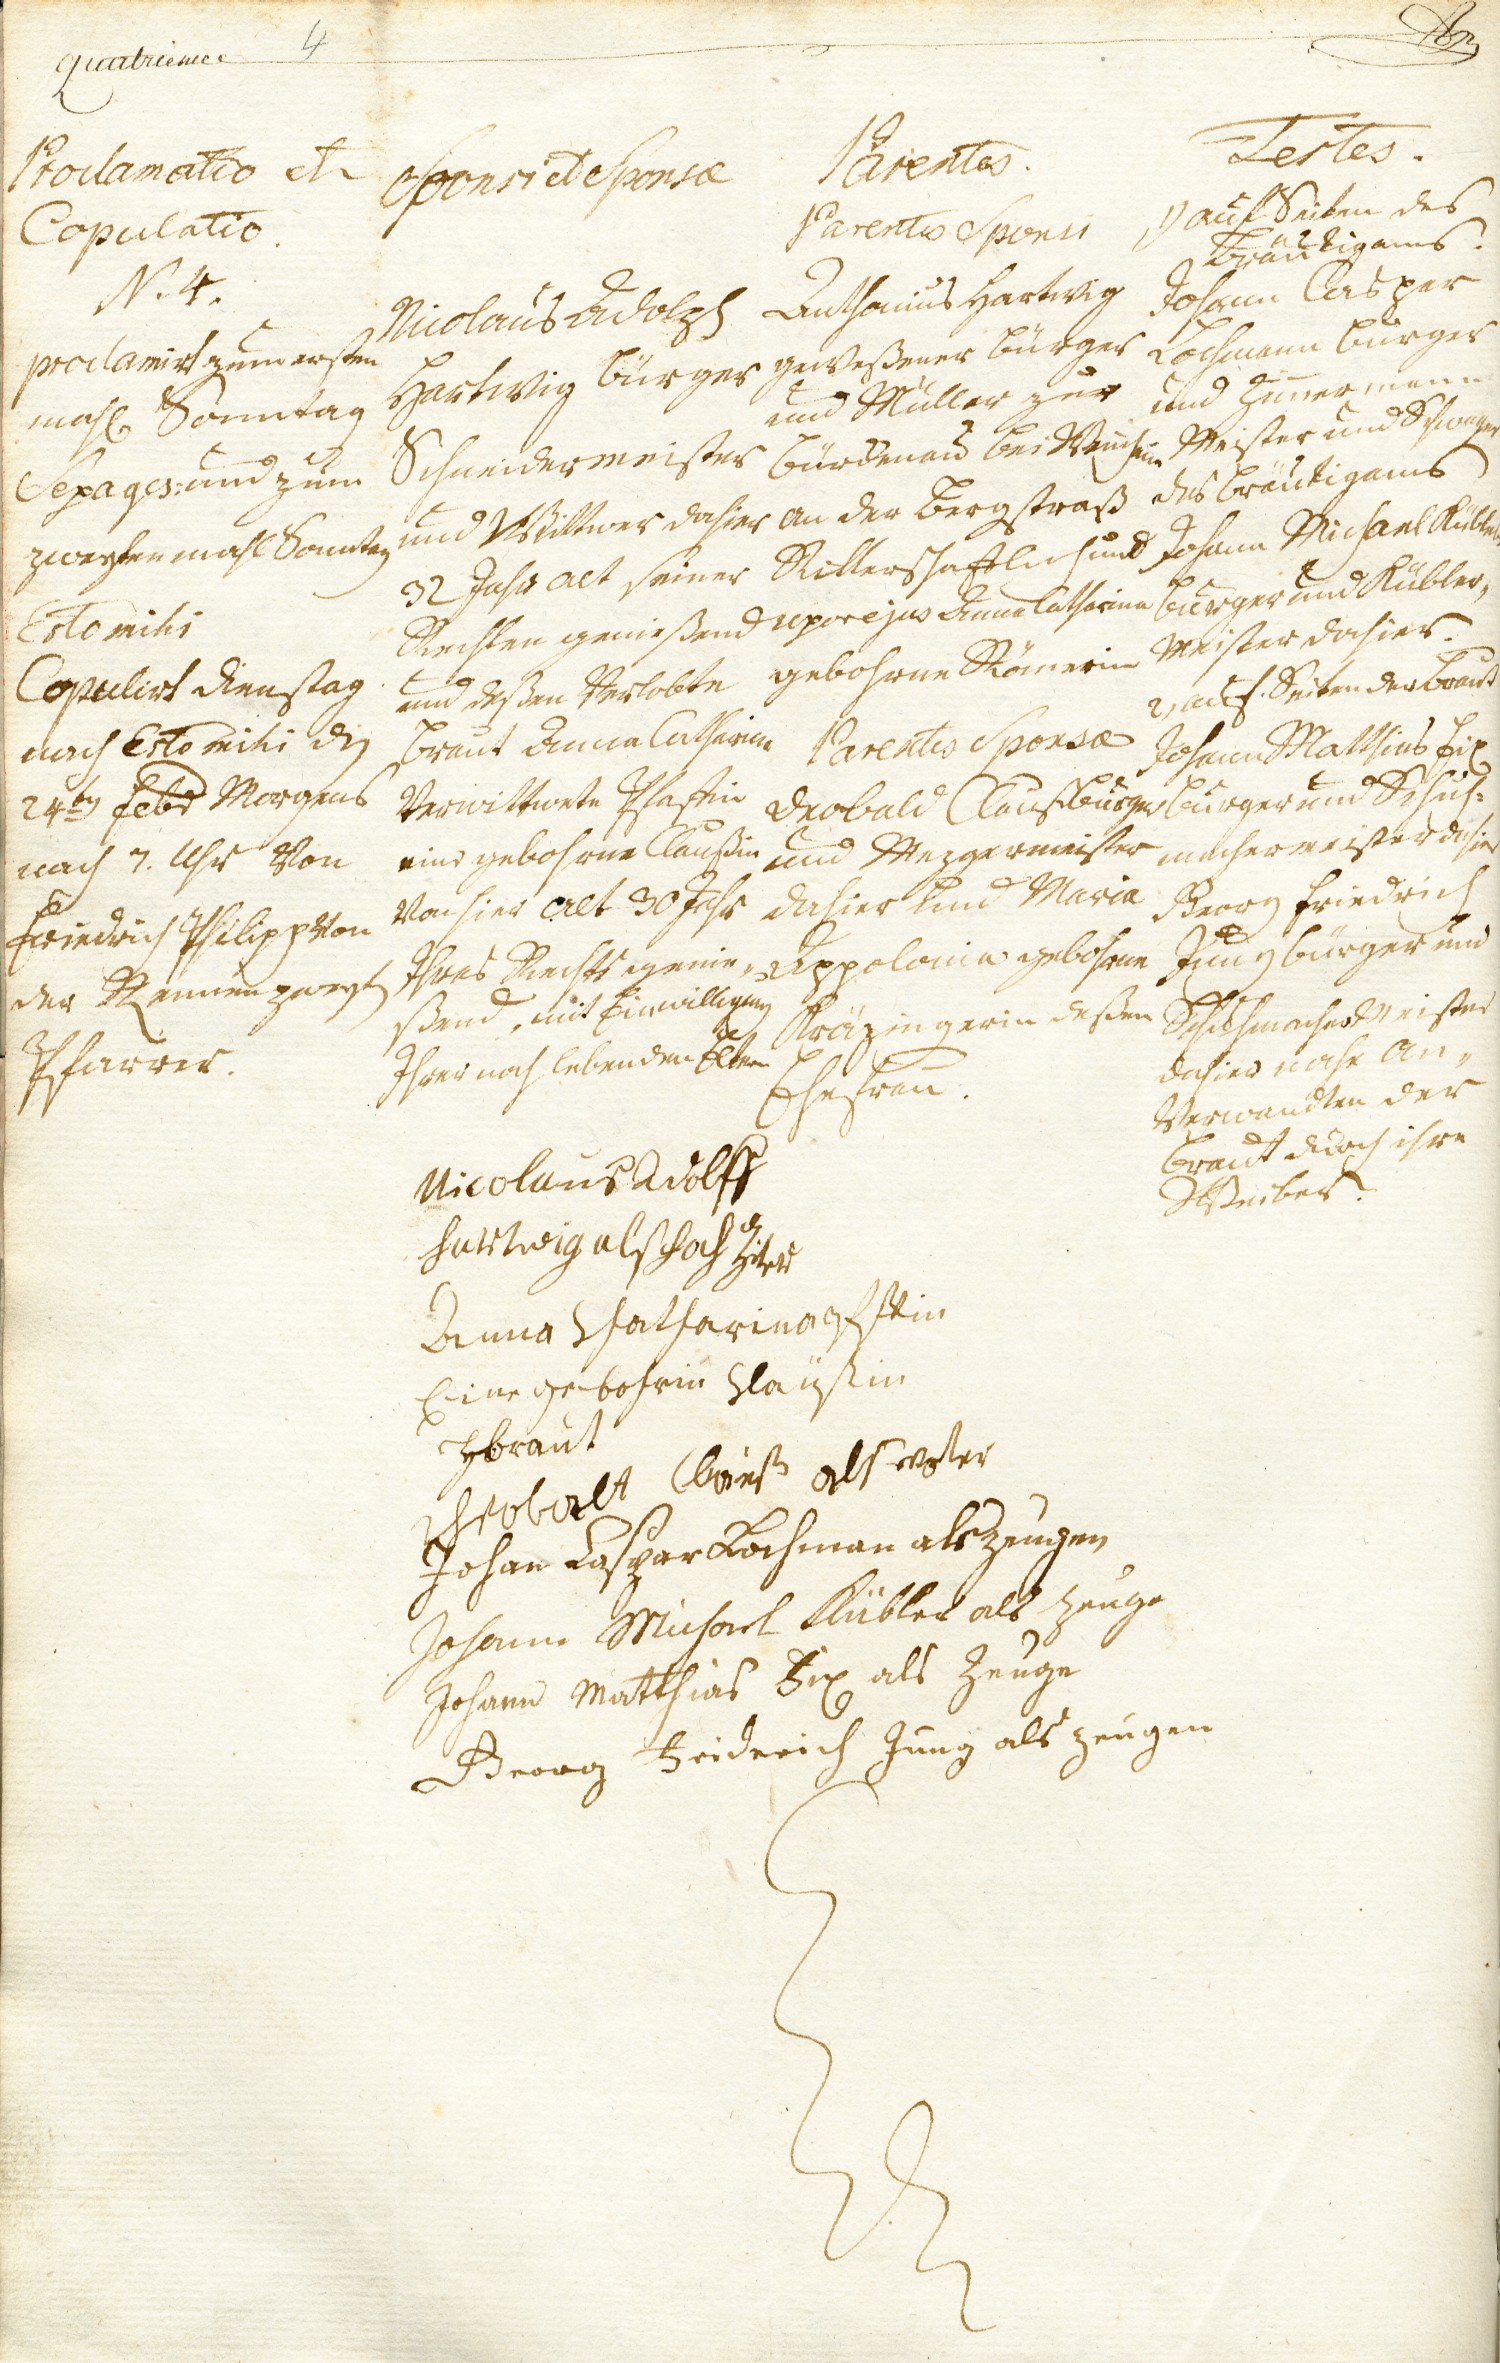 quatrieme 4
Proclamatio et
Copulatio.
N. 4.
proclamirt zum ersten
mahl Sonntag
Sexages: und zum
zweyten mahl Sonntag
Estomihi
Copulirt Dienstag
nach Estomihi d
24ten Febr Morgens
nach 7. Uhr Von
Friedrich Philipp Von
der Rennen zweyt
Pfarrer.
Sponsi et Sponsæ
Nicolaus Adolph
Hartwig bürger
Schneidermeister
und Wittwer dahier
32 Jahr alt seiner
Rechten genießend
und deßen Verlobte
braut Anna Catharina
Verwittwete Pfaffin
eine gebohrne Claußin
Von hier alt 30 Jahr
Ihres Rechts genie„
ßend, mit Einwilligung
Ihrer noch lebenden Eltern
Parentes.
Parentes Sponsi
Anthonius Hartwig
geweßener bürger
und Müller zur
bürdenau bei Weinheim
an der Bergstraß
Ritterschaftlich und
uxor ejus Anna Catharina
gebohrne Römerin
Parentes Sponsæ
Deobald Clauß bürger
und Mezgermeister
dahier und Maria
Appolonia gebohrne
Kräzingerin deßen
Ehefrau.
Testes.
1) auf Seiten des
Bräutigams.
Johann Casper
Lochmann bürger
und Zimmermann
Meister und Schwager
des bräutigams
Johann Michael Kübler
bürger und Kübler„
Meister dahier.
2, auf Seiten der braut
Johann Matthias Fix
bürger und Schuh=
machermeister dahier
Georg Friedrich
Jung bürger und
Schuhmacher Meister
dahier nahe An„
Verwandten der
braut durch ihre
Weiber.
Nicolaus Adolff
Hartwig als hochziter
Anna Chatharina
Eine gebohrin Claüßin
Hbraut
Theobalt Clauß als vater
Johan Caspar Lochman als Zeugen
Johann Michael Kübler als Zeuge
Johann Matthias Fix als Zeuge
Georg Friderich Jung als Zeugen